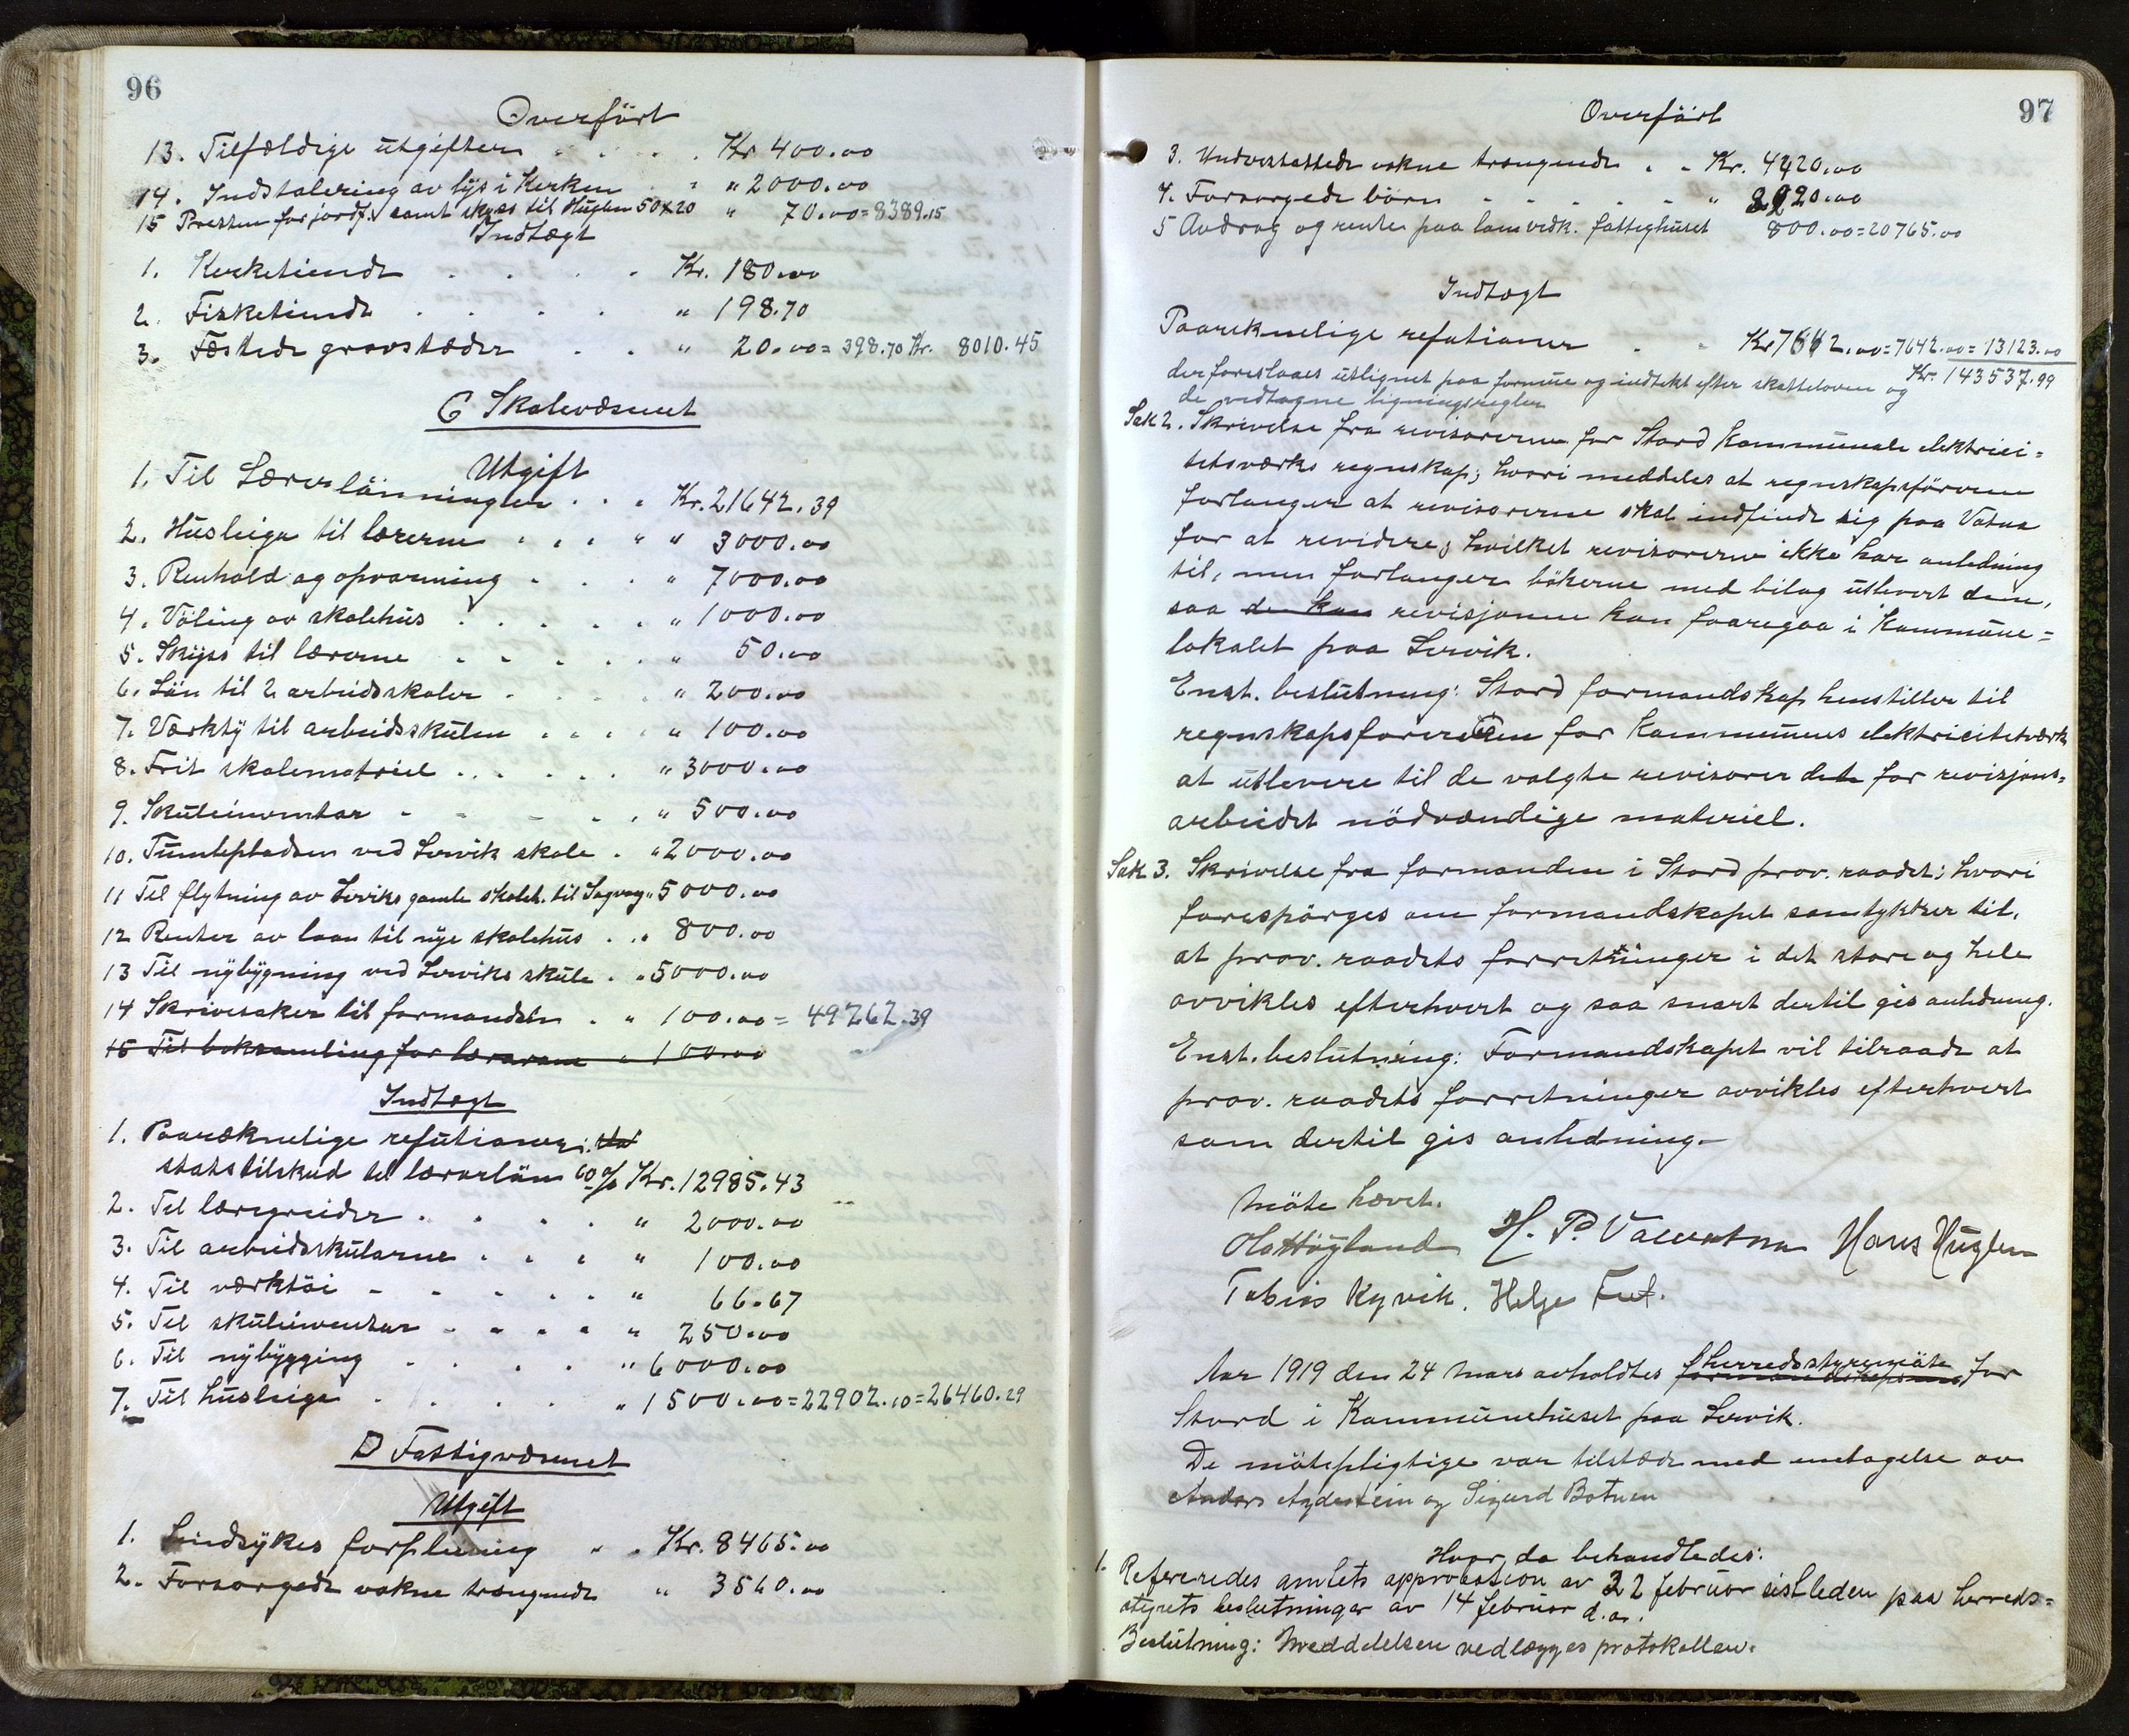 96
Overfört
13. Tilfældige utgifter . . . . Kr 400.00
14. Indstalering av lys i Kerken . . " 2000.00
15 Presten for jordf. samt skyss til Huglen 50+20 " 70.00=8389.15
Indtægt
1. Kerketiende . . . . Kr. 180.00
2. Fisketiende . . . . " 198.70
3. Fæstede gravstæder . . " 20.00=398.70 Kr. 8010.45
C Skolevæsenet
Utgift
1. Til Lærerlönninger . . . Kr. 21642.39
2. Husleige til lærerne . . . " " 3000.00
3. Renhold og opvarming . . . " 7000.00
4. Völing av skolehus . . . . . " 1000.00
5. Skyss til lærerne . . . . . " 50.00
6. Lön til 2 arbeidsskoler . . . . " 200.00
7. Værkty til arbeidsskulen . . . . " 100.00
8. Frit skolematriel . . . . . " 3000.00
9. Skuleinventar - - - . . " 500.00
10. Tumlepladsen ved Lervik skole . " 2000.00
11 Til flytning av Lerviks gamle skoleh. til Sagvag " 5000.00
12 Renter av laan til nye skolehus . . " 800.00
13 Til nybygning ved Lerviks skule . " 5000.00
14 Skrivesaker til formanden . " 100.00 = 49262.39
15 Til boksamling for lærarane " 100.00
Indtægt
1. Paareknelige refutioner: Sta
statstilskud til lærerlön 60% Kr. 12985.43
2. Til læregreider . . . . " 2000.00
3. Til arbeidsskularne . . . " 100.00
4. Til værktöi - - . . . " 66.67
5. Til skuleinventar - . . . " 250.00
6. Til nybygging . . . . " 6000.00
7. Til husleige . . . . " 1500.00=22902.10=26460.29
D Fattigvæsenet
Utgift
1. Sindsykes forpleining " . Kr. 8465.00
2. Forsörgede voksne trængende " 3560.00
97
Overfört
3. Understöttede vokne trængende . . Kr. 4420.00
4. Forsörgede börn - - . . . - " 20.00
5 Avdrag og renter paa laan vedk. fattighuset 800.00=20765.00
Indtægt
Paareknelige refutioner . . Kr 7642.00=7642.00=13123.00
Kr. 143537.99
der foreslaaes utlignet paa formue og indtekt efter skatteloven og
de vedtagne ligningsregler
Sak 2. Skrivelse fra revisorerne for Stord Kommunale elektrici=
tetsværks regnskap; hvori meddeles at regnskapsföreren
forlanger at revisorerne skal indfinde sig paa Vatna
for at revidere; hvilket revisorerne ikke har anledning
til, men forlanger bökerne med bilag utlevert dem,
saa de kan revisjonen kan foregaa i Kommune=
lokalet paa Lervik.
Enst. beslutning: Stord formandskap henstiller til
regnskapsföreren for Kommunens elektricitetsværk
at utlevere til de valgte revisorer det for revisjons=
arbeidet nödvændige materiel.
Sak 3. Skrivelse fra formanden i Stord prov. raadet; hvori
forespörges om formandskapet samtykker til,
at prov. raadets forretninger i det store og hele
avvikles efterhvert og saa snart dertil gis anledning.
Enst. beslutning: Formandskapet vil tilraade at
prov. raadets forretninger avvikles efterhvert
som dertil gis anledning.
Möte hævet.
Ola Höyland H. P. Valvatna Hans Huglen
Tobias Kyvik. Helge
Aar 1919 den 24 Mars avholdtes herredsstyremöte for
Stord i Kommunehuset paa Lervik.
De mötepligtige var tilstæde med undtagelse av
Anders Agdestein og Sigurd Botnen
Hvor da behandledes:
1. Refereredes amtets approbation av 22 februar sistleden paa herreds=
styrets beslutninger av 14 februar d.a.
Beslutning: Meddelelsen vedlægges protokollen.